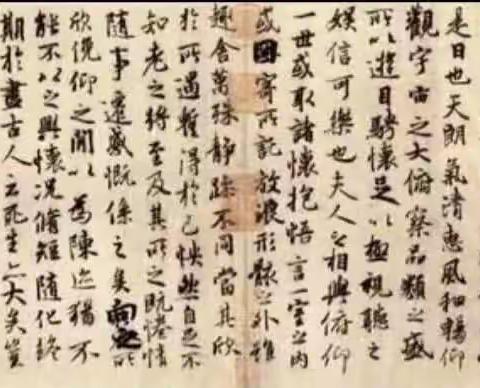 是日也天朗氣清惠風和暢仰
觀宇宙之大俯察品類之盛
所以遊目騁懷足以極視聽之
娛信可樂也夫人之相與俯仰
一世或取諸懷抱悟言一室之內
或因寄所託放浪形骸之外雖
趣舍萬殊靜躁不同當其欣
於所遇暫得於己怏然自足不
知老之將至及其所之既惓情
隨事遷感慨係之矣向之所
欣俛仰之閒以為陳迹猶不
能不以之興懷況脩短隨化終
期於盡古人云死生亦大矣豈